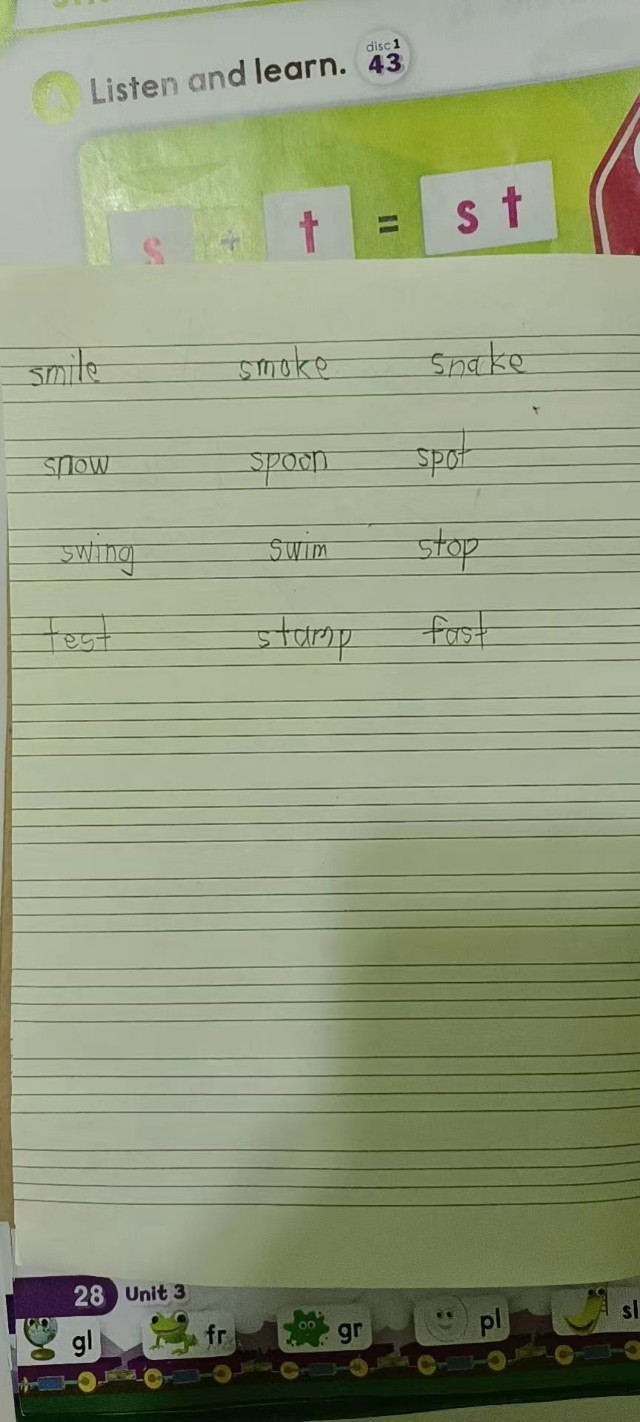 A Listen and learn. disc 1 43
s + t = s t
smile smoke snake
snow spoon spot
swing swim stop
test stamp fast
28 Unit 3
gl fr gr pl sl